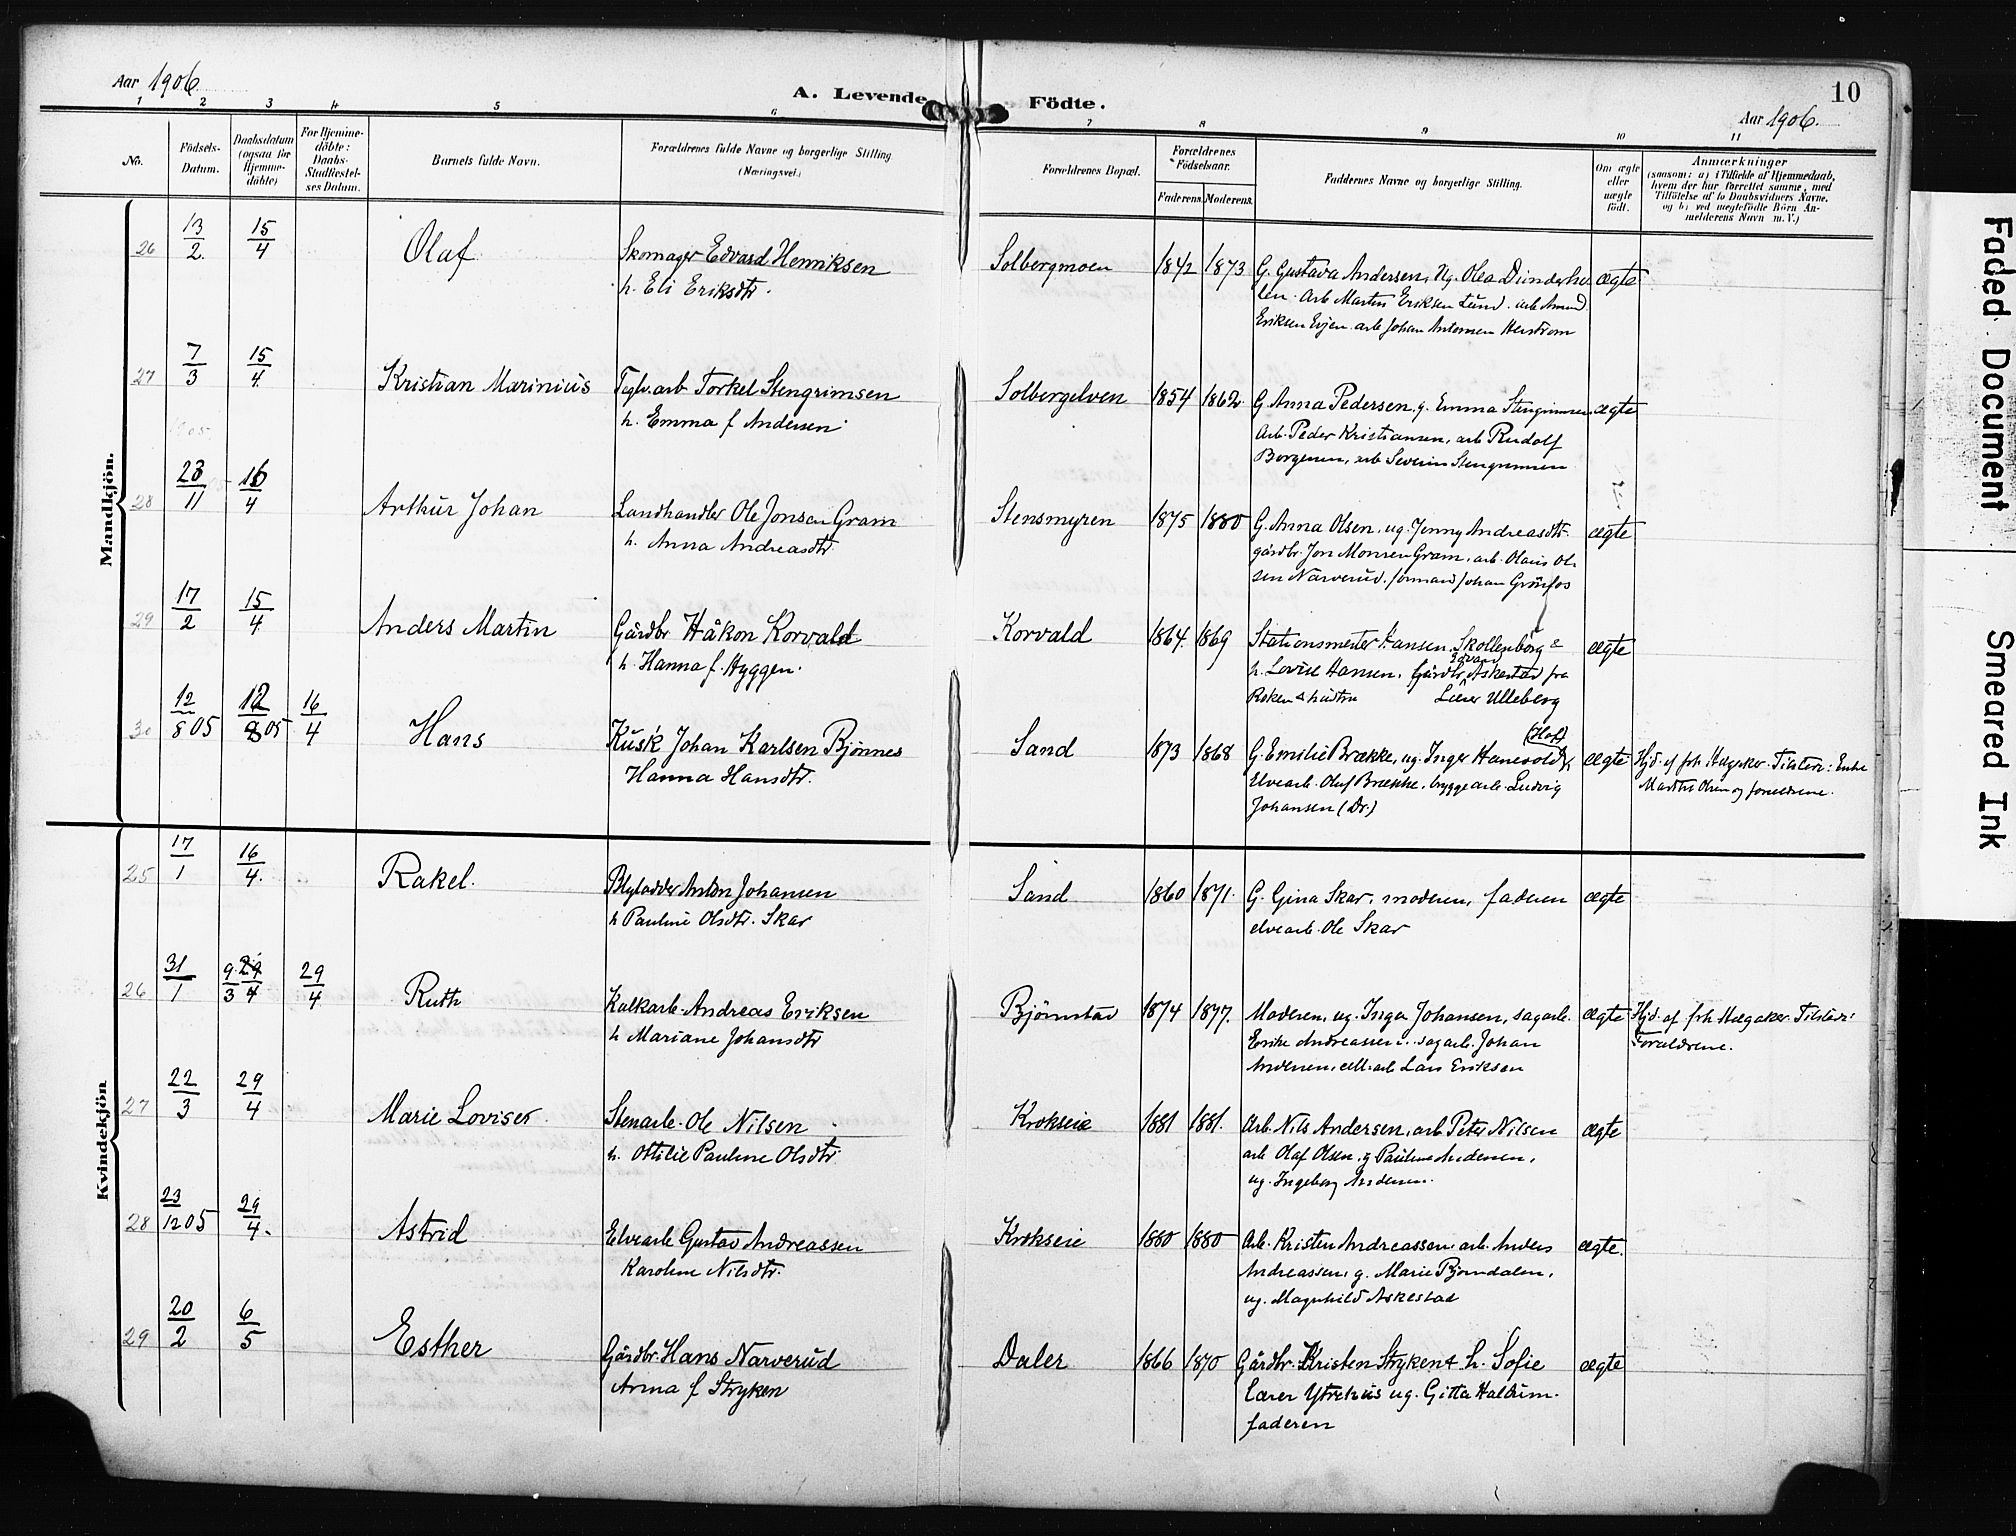 Aar 1906.
A. Levende Födte.
10
Aar 1906.
1 2 3 4 5 6 7 8 9 10 11
No.
Födsels-Datum.
Daabsdatum (ogsaa for Hjemme-döbte)
For Hjemme-döbte: Daabs-Stadfæstel-ses Datum.
Barnets fulde Navn.
Forældrenes fulde Navne og borgerlige Stilling
(Næringsvei.)
Forældrenes Bopæl.
Forældrenes Födselsaar.
Faderens. Moderens.
Faddernes Navne og borgerlige Stilling.
Om ægte eller uægte födt.
Anmærkninger
(saasom: a) i Tilfælde af Hjemmedaab,
hvem der har forrettet samme, med
Tilföielse af to Daabsvidners Navne.
og b) ved uægtefödte Börn An-
melderens Navn m. V.)
Mandkjön.
26 13/2 15/4 Olaf Skomager Edvard Henriksen Solbergmoen 1842 1873 G. Gustava Andersen, Ug. Olea ægte
h. Eli Eriksdtr.
len. Arb Martin Eriksen Lund. arb Amund
Eriksen Evjen. arb Johan Antonsen
27 7/3 15/4 Kristian Marinius Teglv.arb Torkel Stengrimsen Solbergelven 1854 1862 G Anna Pedersen, g. Emma Stengrimsen ægte
h. Emma f. Andersen
Arb. Peder Kristiansen, arb Rudolf
Borgersen, arb Severin Stengrimsen
1905
28 23/11 16/4 Arthur Johan Landhandler Ole Jonsen Gram Stensmyren 1875 1880 G. Anna Olsen, ug. Jenny Andreasdtr. ægte
h. Anna Andreasdtr
gårdbr. Jon Monsen Gram, arb. Olaus Ol-
sen Narverud. formand Johan Grönfos
29 17/2 15/4 Anders Martin Gårdbr Håkon Korvald Korvald 1864 1869 Stationsmester Hansen, Skollenborg & ægte
h. Hanna f. Hyggen.
h. Lovise Hansen, Gårdbr. Askestad fra
Röken & hustru Lærer Ulleberg
30 12/8 05 12/8 05 16/4 Hans Kusk Johan Karlsen Bjönnes Sand 1873 1868 G. Emilie Brække, ug. Inger (Hof) ægte Hjd. af frk Hægaker. Tilstede: Enke
Hanna Hansdtr.
Elvearb. Oluf Brække, bryggearb. Ludvig
Marthe Olsen og forældrene.
Johansen (Dr.)
Kvindekjön
25 17/1 16/4 Rakel. Anton Johansen Sand 1860 1871. G. Gina Skar, moderen, faderen ægte
h Pauline Olsdtr. Skar
elvearb. Ole Skar
26 31/1 9/3 29/4 29/4 Ruth Kalkarb. Andreas Eriksen Björnstad 1874 1877. Moderen, ug. Inga Johansen, sagarb. ægte Hjd. af frk Hægaker. Tilstede:
h Mariane Johansdtr
Andreassen, sagarb. Johan
Forældrene.
Andersen, cell.arb Lars Eriksen
27 22/3 29/4 Marie Lovise Stenarb. Ole Nilsen Krokseie 1881 1881. Arb. Nils Andersen, arb. Peter Nilsen ægte
h. Ottilie Pauline Olsdtr
arb Olaf Olsen, g Pauline Andersen,
ug. Ingeborg Andersen.
28 23/12 05 29/4 Astrid Elvearb Gustav Andreassen Krokseie 1880 1880 Arb. Kristen Andreassen, arb. Anders ægte.
Karoline Nilsdtr.
Andreassen, g. Marie Björndalen,
ug. Magnhild Askestad
29 20/2 6/5 Esther Gårdbr. Hans Narverud Daler 1866 1870 Gårdbr. Kristen Stryken & h. Sofie ægte
Anna f. Stryken
Lærer Ytrehus ug. Gitta
faderen
Faded Document
Smeared Ink